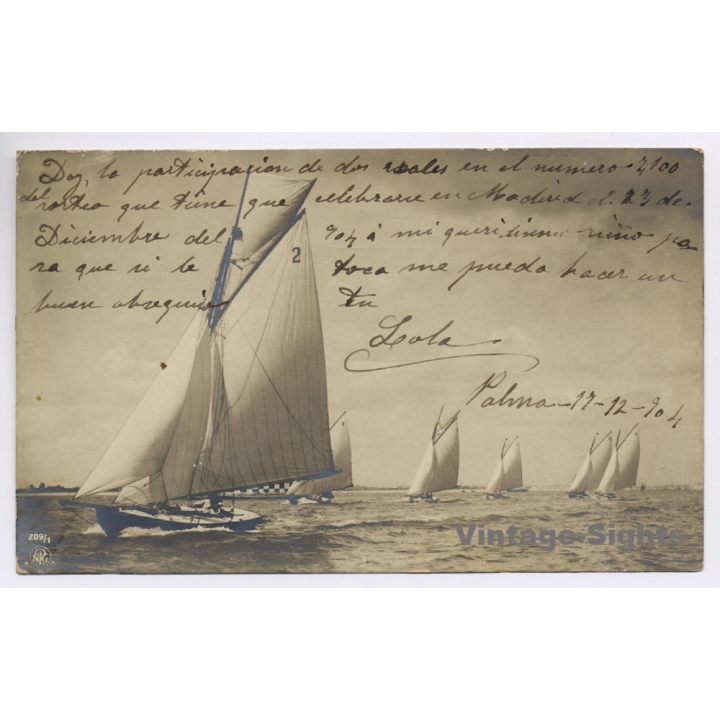 Doy la participacion de dos reales en el numero 7100
del sorteo que tiene que celebrarse en Madrid el 23 de
Diciembre del 904 á mi queridisimo niño pa
ra que si le toca me pueda hacer un
buen obsequio tu
Lola
Palma-17-12-904
2
209/1
NPG
Vintage-Sights